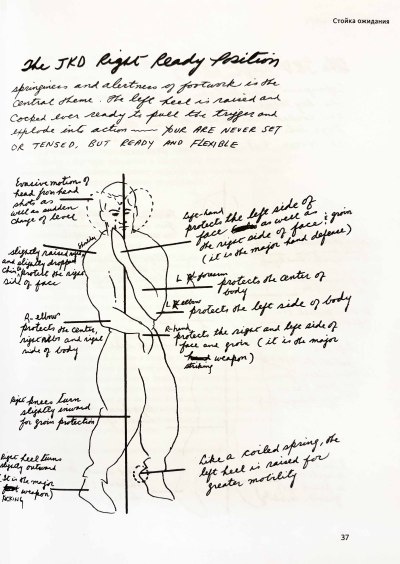 Стойка ожидания
The JKD Right Ready Position
springiness and alertness of footwork is the
central theme. The left heel is raised and
cocked ever ready to pull the trigger and
explode into action — YOUR ARE NEVER SET
OR TENSED, BUT READY AND FLEXIBLE
Evasive motion of
head from head
shots as
well as sudden
change of level
Left-hand
protects the left side of
face as well as
the right side of face & groin
(it is the major hand defense)
slightly raised
and slightly dropped
chin protect the right
side of face
L forearm
protects the center of
body
L elbow
protects the left side of body
R-elbow
protects the center,
right ribs and right
side of body
R-hand
protects the right and left side
of face and groin (it is the major
hand weapon)
striking
Right knees turn
slightly inward
for groin protection
Right heel turns
slightly outward
(it is the major
weapon)
KICKING
Like a coiled spring, the
left heel is raised for
greater mobility
37